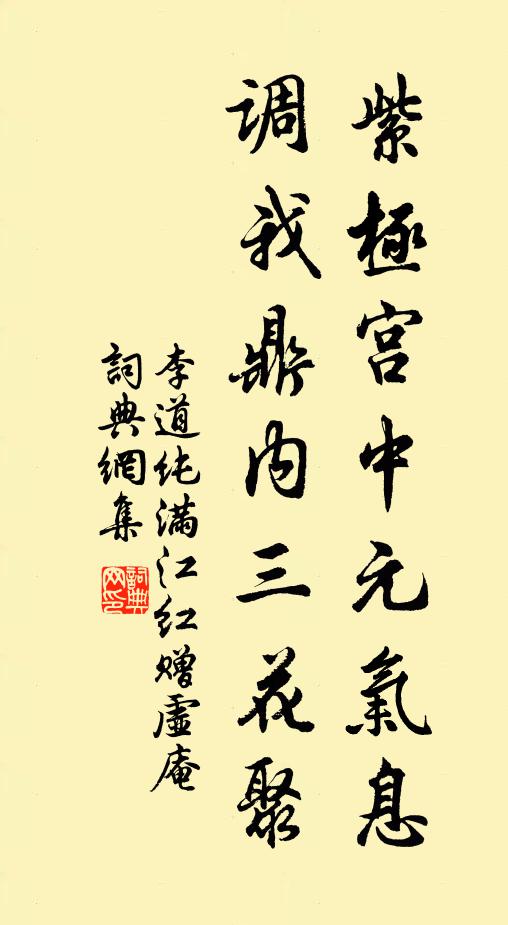 紫極宫中元氣息
调我鼎内三花聚
李道纯满江红赠虚庵
詞典網集
詞典网印